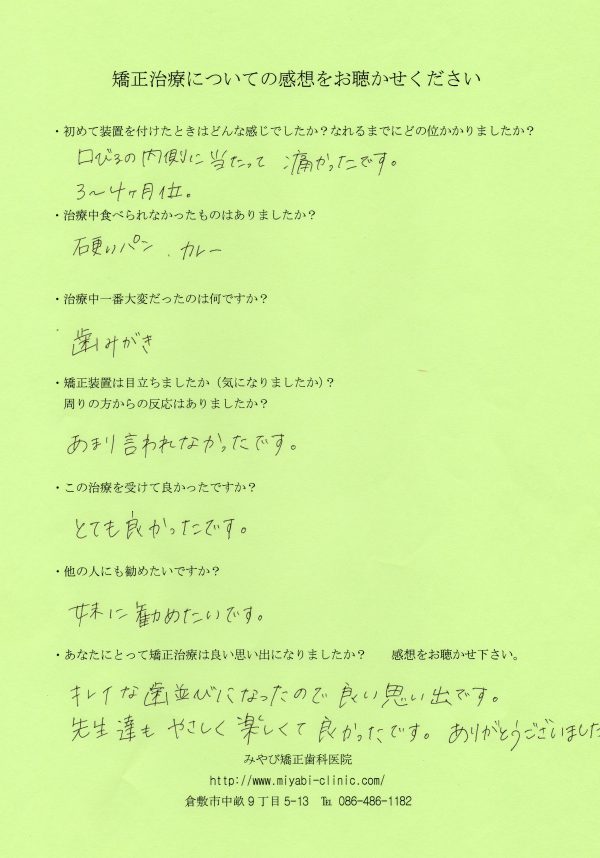 矯正治療についての感想をお聴かせください
・初めて装置を付けたときはどんな感じでしたか？なれるまでにどの位かかりましたか？
口びるの内側に当たって 痛かったです。
3～4ヶ月位。
・治療中食べられなかったものはありましたか？
硬いパン．カレー
・治療中一番大変だったのは何ですか？
歯みがき
・矯正装置は目立ちましたか（気になりましたか）？
周りの方からの反応はありましたか？
あまり言われなかったです。
・この治療を受けて良かったですか？
とても良かったです。
・他の人にも勧めたいですか？
妹に勧めたいです。
・あなたにとって矯正治療は良い思い出になりましたか？ 感想をお聴かせ下さい。
キレイな歯並びになったので良い思い出です。
先生達も やさしく楽しくて良かったです。ありがとうございました
みやび矯正歯科医院
http://www.miyabi-clinic.com/
倉敷市中畝9丁目5-13 ℡ 086-486-1182